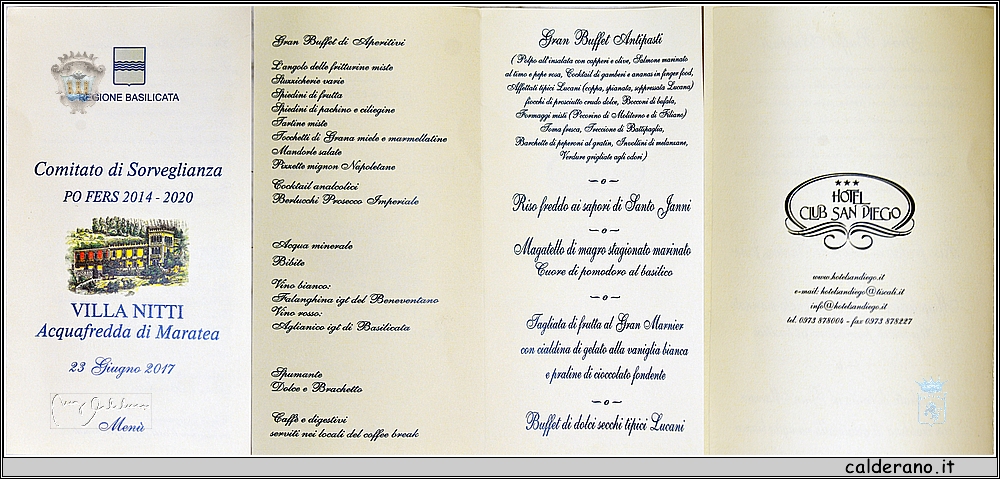 REGIONE BASILICATA
Comitato di Sorveglianza
PO FERS 2014 - 2020
VILLA NITTI
Acquafredda di Maratea
23 Giugno 2017
Menù
Gran Buffet di Aperitivi
L'angolo delle fritturine miste
Stuzzicherie varie
Spiedini di frutta
Spiedini di pachino e ciliegine
Tartine miste
Tocchetti di Grana miele e marmellatine
Mandorle salate
Pizzette mignon Napoletane
Cocktail analcolici
Berlucchi Prosecco Imperiale
Acqua minerale
Bibite
Vino bianco:
Falanghina igt del Beneventano
Vino rosso:
Aglianico igt di Basilicata
Spumante
Dolce e Brachetto
Caffè e digestivi
serviti nei locali del coffee break
Gran Buffet Antipasti
( Polpo all'insalata con capperi e olive, Salmone marinato
al timo e pepe rosa, Cocktail di gamberi e ananas in finger food,
Affettati tipici Lucani (coppa, spianata, soppressata Lucana)
fiocchi di prosciutto crudo dolce, Bocconi di bufala,
Formaggi misti (Pecorino di Moliterno e di Filiano)
Toma fresca, Treccione di Battipaglia,
Barchette di peperoni al gratin, Involtini di melanzane,
Verdure grigliate agli odori )
~o~
Riso freddo ai sapori di Santo Janni
~o~
Magatello di magro stagionato marinato
Cuore di pomodoro al basilico
~o~
Tagliata di frutta al Gran Marnier
con cialdina di gelato alla vaniglia bianca
e praline di cioccolato fondente
~o~
Buffet di dolci secchi tipici Lucani
HOTEL
CLUB SAN DIEGO
www.hotelsandiego.it
e-mail: hotelsandiego@tiscali.it
info@hotelsandiego.it
tel. 0973 878004 - fax 0973 878227
calderano.it